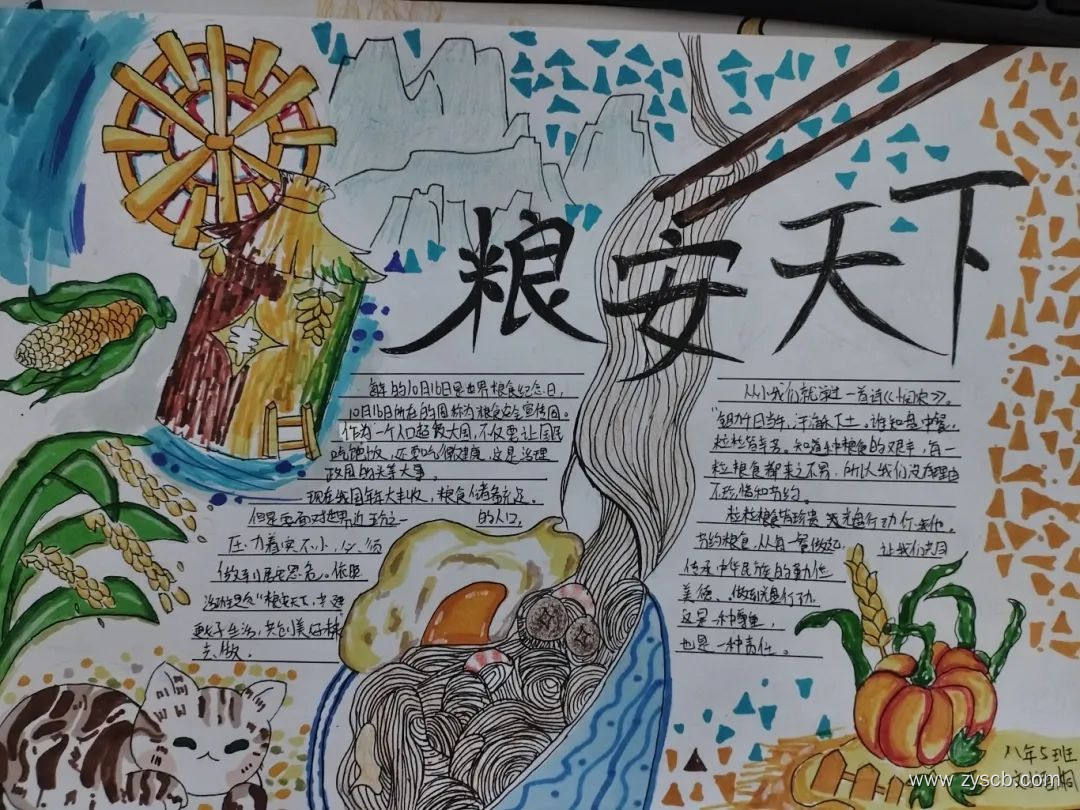 粮安天下
每年的10月16日是世界粮食纪念日，
10月16日所在的周称为粮食安全宣传周。
作为一个人口超级大国，不仅要让国民
吃饱饭，还要吃得健康，这是治理
政府的头等大事
现在我国年年大丰收，粮食储备充足。
但是要面对世界近五分之一 的人口，
压力着实不小，必须
做到居安思危。依照
活动主题“粮安天下，
共创美好
去做。
从小我们就读过一首诗《悯农》。
“锄禾日当午，汗滴禾下土。谁知盘中餐，
粒粒皆辛苦。知道种粮食的艰辛，每一
粒粮食都来之不易，所以我们没有理由
不珍惜和节约。
粒粒粮食皆珍贵 光盘行动
节约粮食，从每一餐做起， 让我们共同
传承中华民族的勤俭
美德、做到光盘行动
这是一种尊重，
也是一种责任。
八年5班
www.zyscb.com